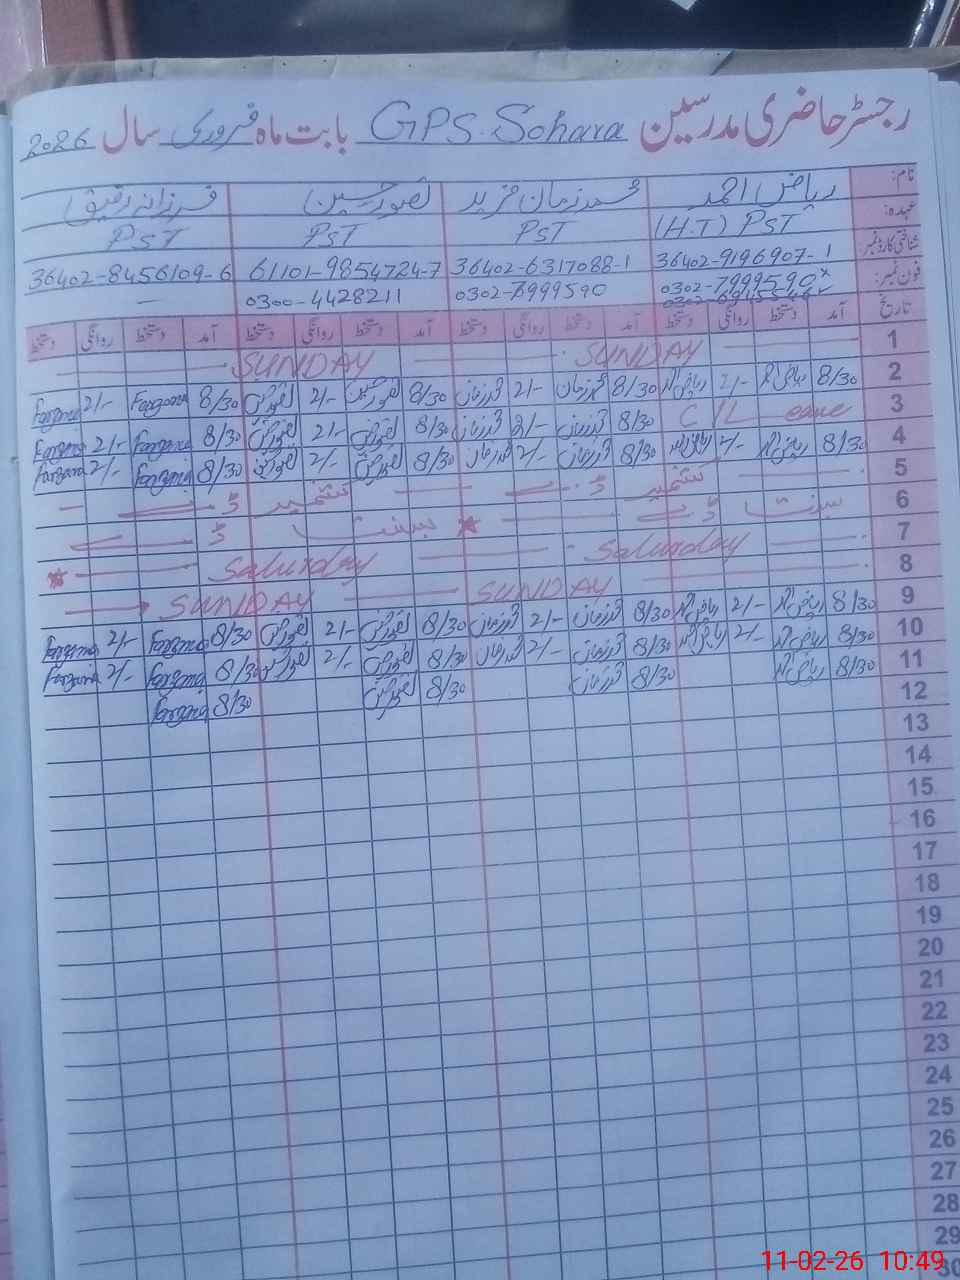 رجسٹر حاضری مدرسین GPS. Sohara بابت ماہ فروری سال 2026
نام: ریاض احمد محمد زمان فرید تصور حسین فرزانہ رفیق
عہدہ: (H.T) PST PST PST PST
شناختی کارڈ نمبر: 36402-9196907-1 36402-6317088-1 61101-9854724-7 36402-8456109-6
فون نمبر: 0302-7999590 0300-4428211 —
تاریخ آمد دستخط روانگی دستخط آمد دستخط روانگی دستخط آمد دستخط روانگی دستخط آمد دستخط روانگی دستخط
1 SUNDAY SUNDAY
2 8/30 ریاض احمد 2/- ریاض احمد 8/30 محمد زمان 2/- محمد زمان 8/30 تصور حسین 2/- تصور حسین 8/30 Farzana 2/- Farzana
3 C/L eave 8/30 محمد زمان 2/- محمد زمان 8/30 تصور حسین 2/- تصور حسین 8/30 Farzana 2/- Farzana
4 8/30 ریاض احمد 2/- ریاض احمد 8/30 محمد زمان 2/- محمد زمان 8/30 تصور حسین 2/- تصور حسین 8/30 Farzana 2/- Farzana
5 کشمیر ڈے کشمیر ڈے
6 بسنت ڈے بسنت ڈے
7 Saturday Saturday
8 SUNDAY SUNDAY
9 8/30 ریاض احمد 2/- ریاض احمد 8/30 محمد زمان 2/- محمد زمان 8/30 تصور حسین 2/- تصور حسین 8/30 Farzana 2/- Farzana
10 8/30 ریاض احمد 2/- ریاض احمد 8/30 محمد زمان 2/- محمد زمان 8/30 تصور حسین 2/- تصور حسین 8/30 Farzana 2/- Farzana
11 8/30 ریاض احمد 8/30 محمد زمان 8/30 تصور حسین 8/30 Farzana
12
13
14
15
16
17
18
19
20
21
22
23
24
25
26
27
28
29
30
11-02-26 10:49